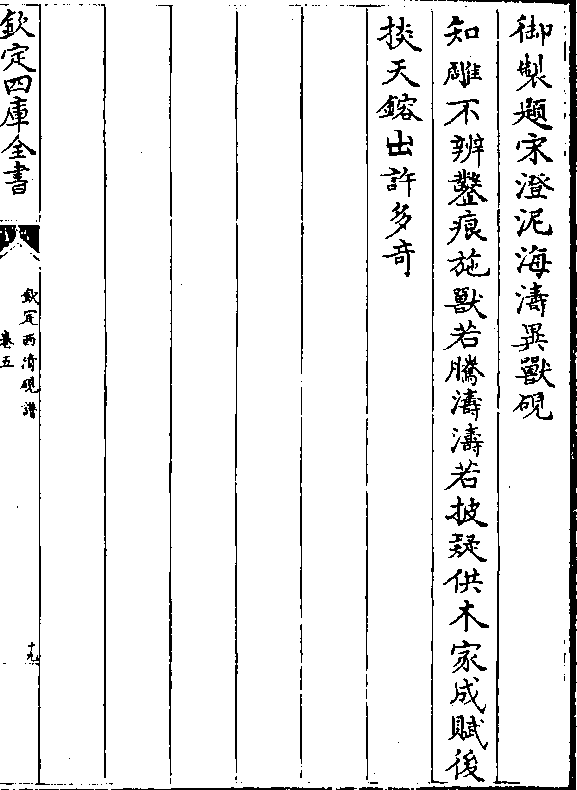 御製題宋澄泥海濤異獸硯
知雕不辨鑿痕施獸若騰濤濤若披疑供木家成賦後
掞天鎔出許多奇
欽定四庫全書
欽定西清硯譜
卷五
十九